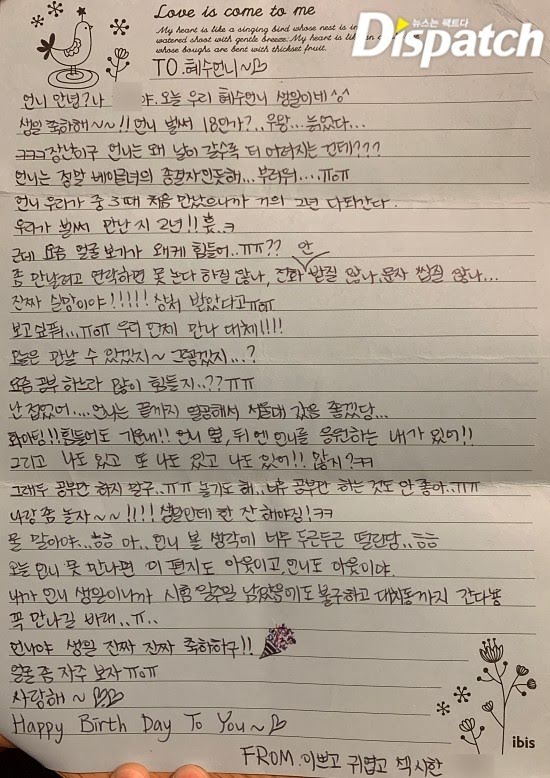 Love is come to me
My heart is like a singing bird whose nest is in
watered shoot with gentle breeze. My heart is like an
whose boughs are bent with thickset fruit.
뉴스는 팩트다
Dispatch
TO. 혜수언니~♡
언니 안녕? 나 야. 오늘 우리 혜수언니 생일이네^ㅎ^
생일 축하해~~!! 언니 벌써 18인가?.. 우왕... 늙었다...
ㅋㅋㅋ장난이구 언니는 왜 날이 갈수록 더 어려지는 건데???
언니는 정말 베이글녀의 종결자인듯해... 부러워....ㅠㅠ
언니 우리가 중3때 처음 만났으니까 거의 2년 다되간다.
우리가 벌써 만난지 2년!! 흝.ㅋ
근데 요즘 얼굴보기가 왜케 힘들어..ㅠㅠ??
좀 만날려고 연락하면 못 논다 하질 않나, 전화 안 받질 않나, 문자 씹질 않나...
진짜 실망이야!!!!! 상처 받았다고ㅠㅠ
보고싶퓨...ㅠㅠ 우리 언제 만나 대체!!!!
오늘은 만날 수 있겠지~ 그렇겠지...?
요즘 공부 하느라 많이 힘들지..??ㅠㅠ
난 접었어.... 언니는 끝까지 열공해서 서울대 갔음 좋겠당...
화이팅!! 힘들어도 기운내!! 언니 옆, 뒤엔 언니를 응원하는 내가 있어!!
그리고 나도 있고 또 나도 있고 나도 있어!! 많지?ㅋㅋ
그래두 공부만 하지 말구..ㅠㅠ 놀기도 해..너무 공부만 하는 것도 안 좋아..ㅠㅠ
나랑 좀 놀자~~!!!! 생일인데 한 잔 해야징!ㅋㅋ
물 말이야..ㅎㅎ 아.. 언니 볼 생각에 너무 두근두근 떨린당..ㅎㅎ
오늘 언니 못 만나면 이 편지도 아웃이고, 언니도 아웃이야.
내가 언니 생일이니까 시험 일주일 남았음에도 불구하고 대치동까지 간다뇽
꼭 만나길 바래..ㅠ..
언니야 생일 진짜 진짜 축하하구!!
얼굴 좀 자주 보자ㅠㅠ
사랑해~♡♡
Happy Birth Day To You~♡
FROM. 이쁘고 귀엽고 섹시한
ibis